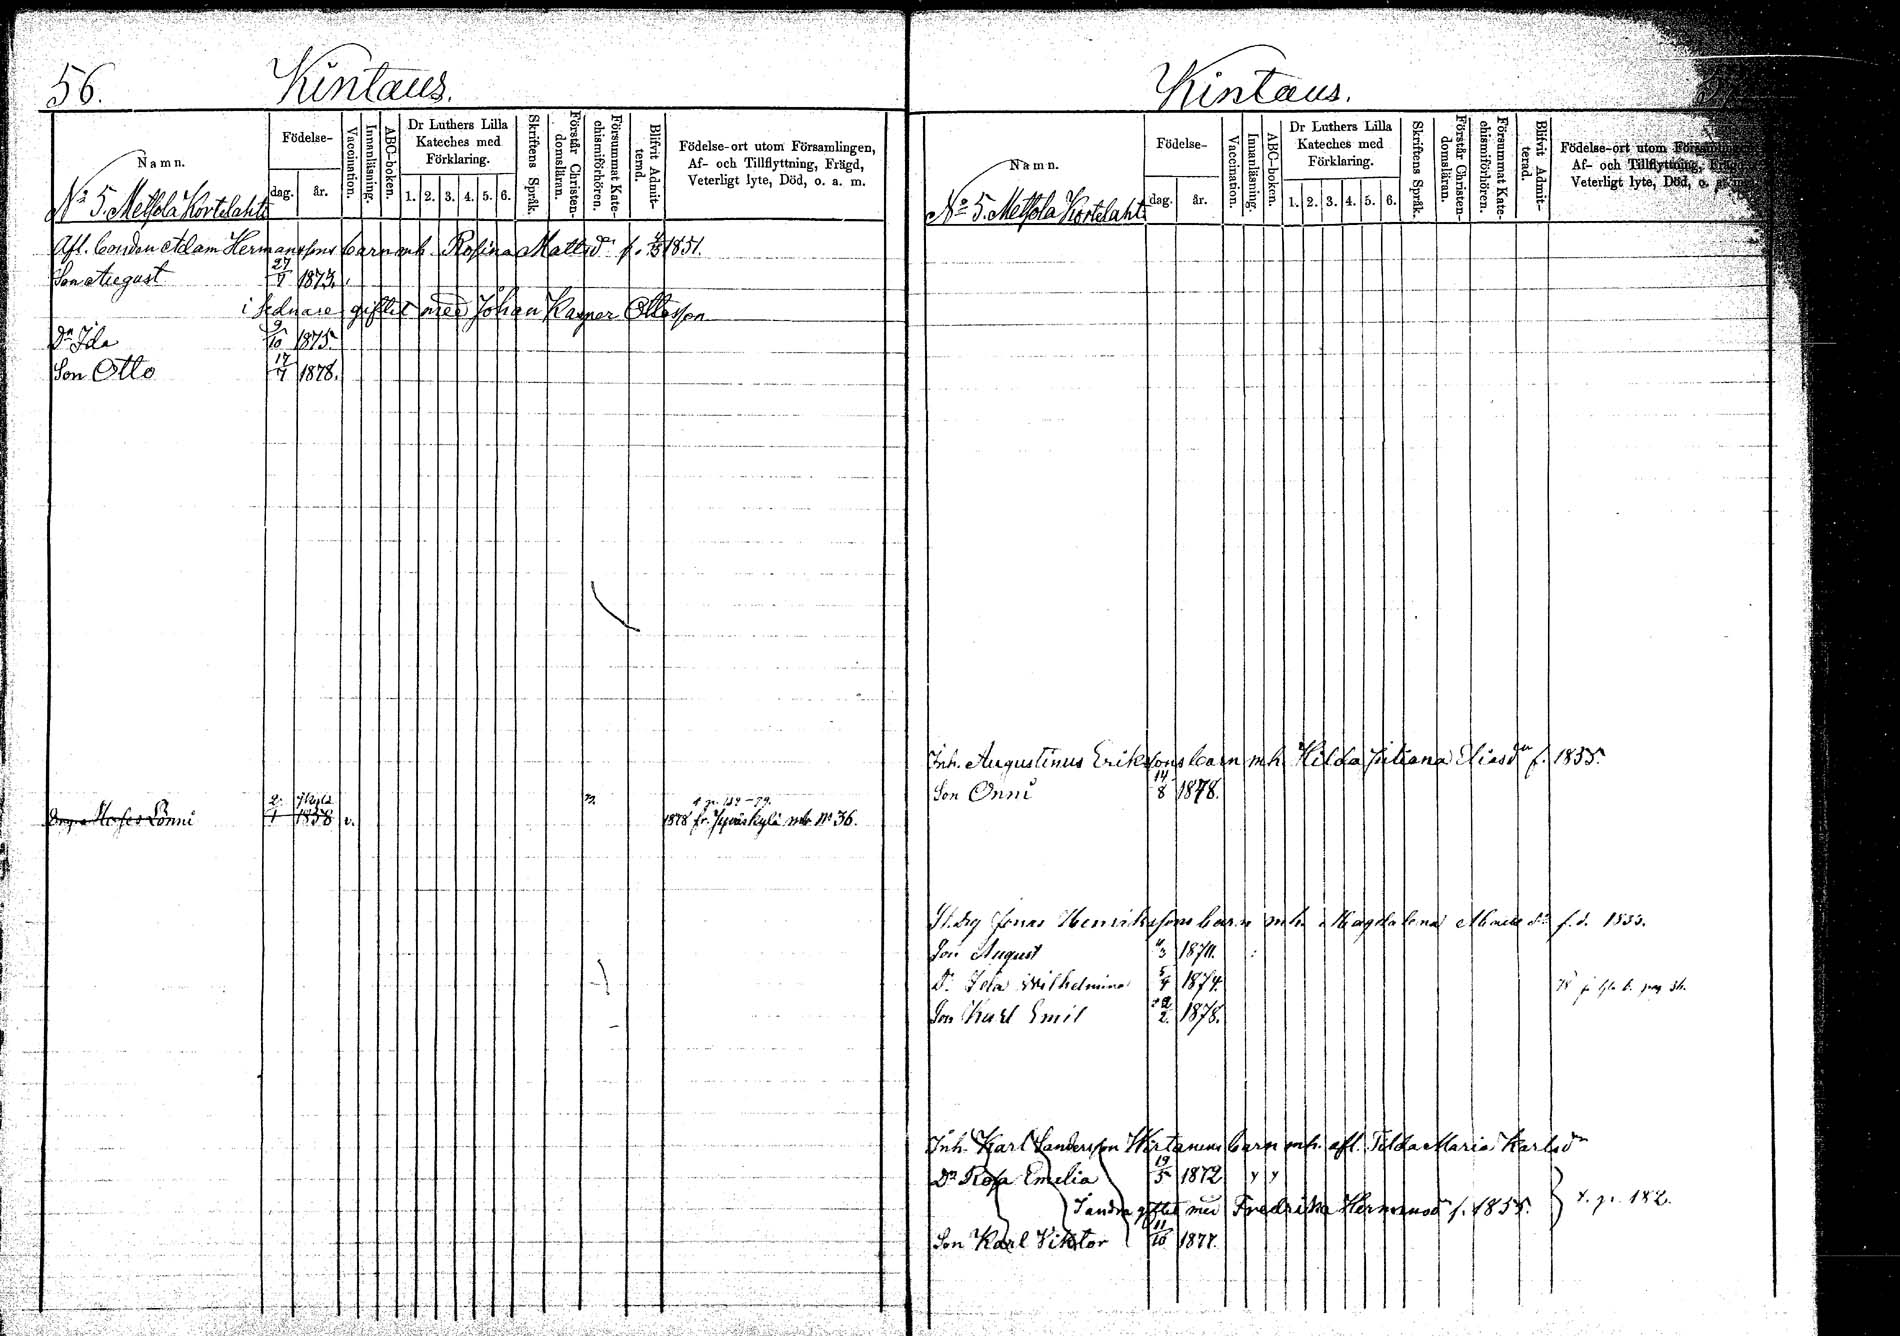 56.
Kintaus.
Namn.
Födelse-
dag.
år.
Vaccination.
Innanläsning.
ABC-boken.
Dr Luthers Lilla
Kateches med
Förklaring.
1. 2. 3. 4. 5. 6.
Skriftens Språk.
Förstår Christen-
domsläran.
Försummat Kate-
chismiförhören.
Blifvit Admit-
terad.
Födelse-ort utom Församlingen,
Af- och Tillflyttning, Frägd,
Veterligt lyte, Död, o. a. m.
No 5. Metsola Kortelaht
Afl. Bonden Adam Hermanssons barn mh. Rosina Mattsdr f. 1851.
Son August 27/7 1873.
i sednare giftet med Johan Kasper Ottosson
Dr Ida 9/10 1875.
Son Otto 17/7 1878.
t. p. 132-79.
Moses Lönni 2/1 1858 v. 1878 fr. Jyväskylä mb. No 36.
Kintaus.
Namn.
Födelse-
dag.
år.
Vaccination.
Innanläsning.
ABC-boken.
Dr Luthers Lilla
Kateches med
Förklaring.
1. 2. 3. 4. 5. 6.
Skriftens Språk.
Förstår Christen-
domsläran.
Försummat Kate-
chismiförhören.
Blifvit Admit-
terad.
Födelse-ort utom Församlingen,
Af- och Tillflyttning, Frägd,
Veterligt lyte, Död, o. a. m.
No 5. Metsola Kortelaht
Inh. Augustinus Erikssons barn mh. Hilda Juliana Eliasdr f. 1855.
Son Onni 14/8 1878.
Jonas Henrikssons barn mh. Magdalena f. d. 1833.
Son August 1870.
Dr Ida Wilhelmina 5/4 1874.
Son Karl Emil 1878.
Inh. Karl Sandersson Wirtanens barn mh. afl. Tilda Maria Karlsdr
Dr Rosa Emelia 19/5 1872
I andra giftet med Fredrika Hermansdr f. 1855. t. p. 182.
Son Karl Viktor 11/10 1877.